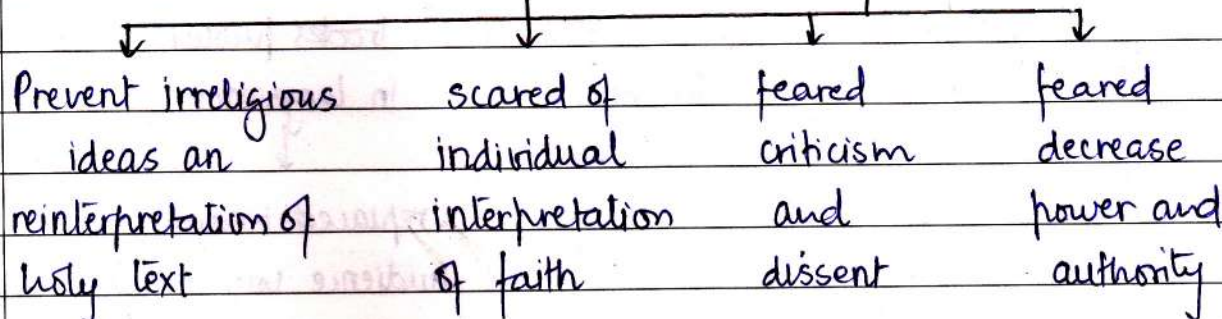 Prevent irreligious
ideas an
reinterpretation of
holy text
scared of
individual
interpretation
of faith
feared
criticism
and
dissent
feared
decrease
power and
authority